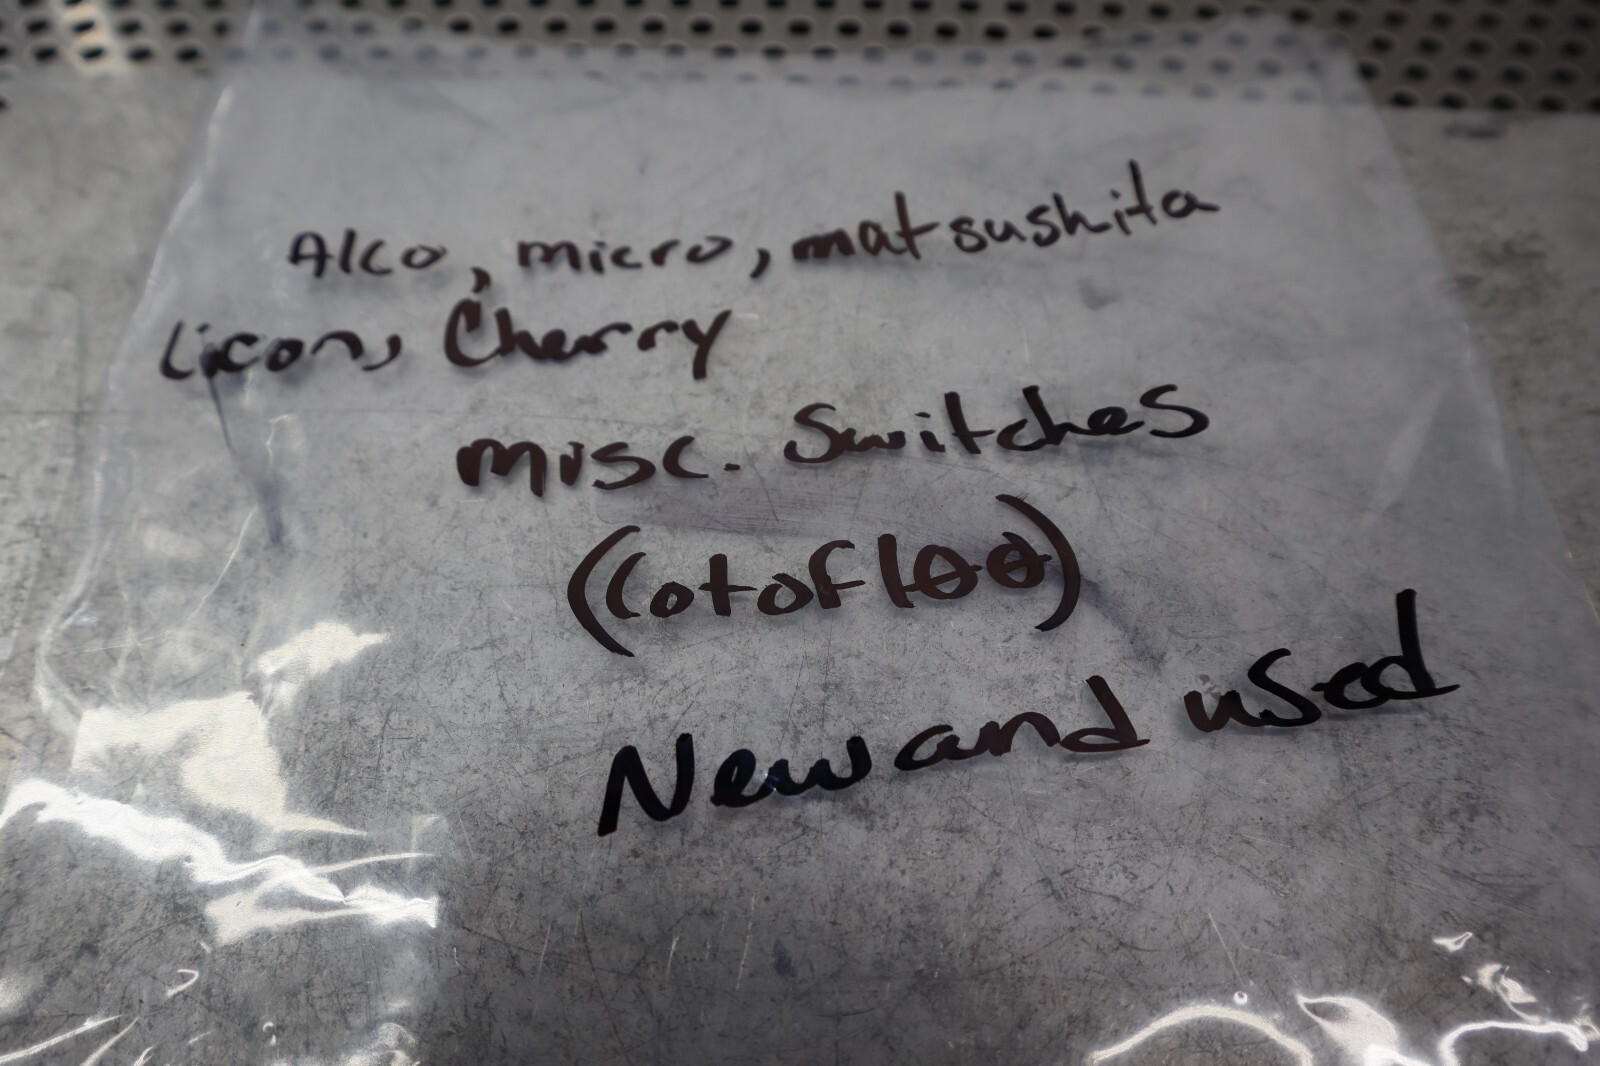 Alco, micro, matsushita
Licon, Cherry
misc. Switches
(Lot of 100)
New and used